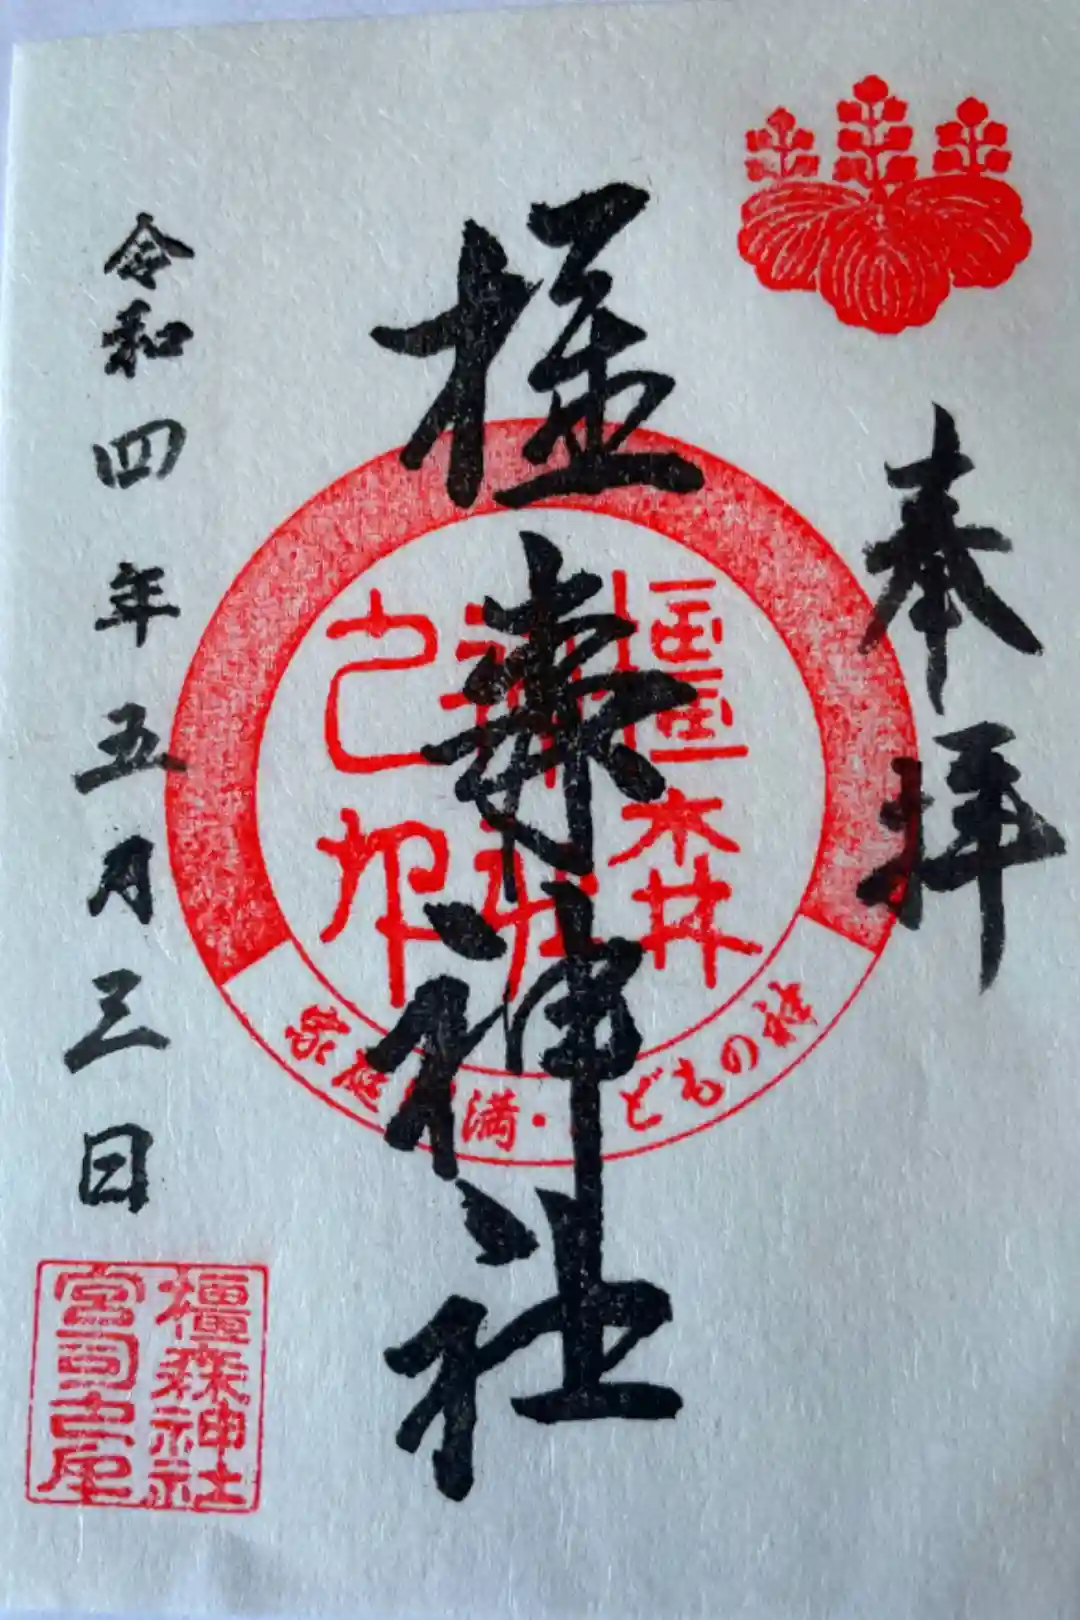 奉拝
橿森神社
橿森
神社
之印
家庭円満・こどもの神
令和四年五月三日
橿森神社
宮司古尾